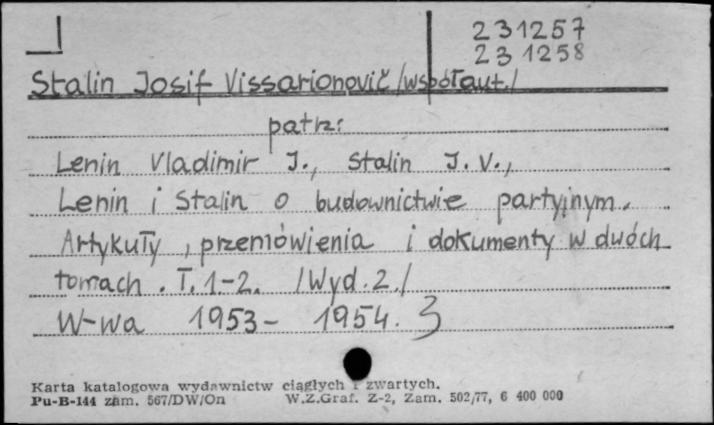 231257
231258
Stalin Josif Vissarionovič /współaut./
patrz:
Lenin Vladimir J., Stalin J. V.,
Lenin i Stalin o budownictwie partyjnym.
Artykuły, przemówienia i dokumenty w dwóch
tomach. T. 1-2. /Wyd. 2./
W-wa 1953- 1954. 3
Karta katalogowa wydawnictw ciągłych i zwartych.
Pu-B-144 zam. 567/DW/On W.Z.Graf. Z-2, Zam. 502/77, 6 400 000